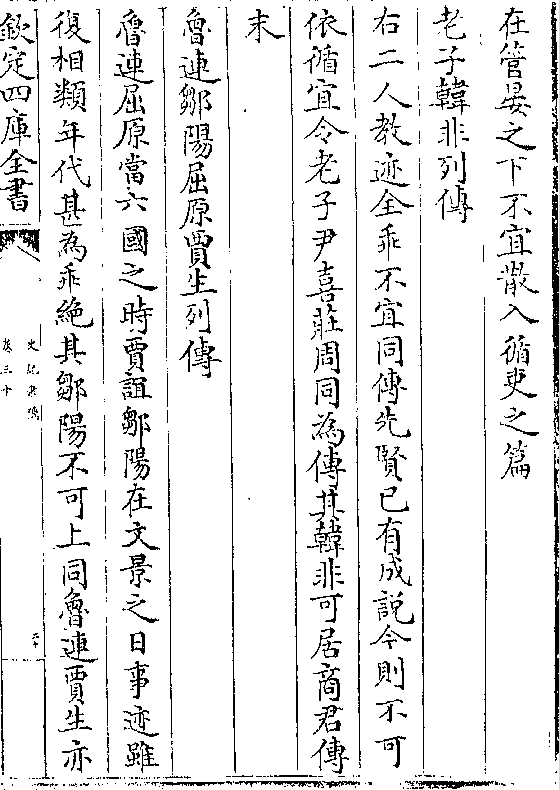 在管晏之下不宜散入循吏之篇
老子韓非列傳
右二人教迹全乖不宜同傳先賢已有成說今則不可
依循宜令老子尹喜莊周同為傳其韓非可居商君傳
末
魯連鄒陽屈原賈生列傳
魯連屈原當六國之時賈誼鄒陽在文景之日事迹雖
復相類年代甚為乖絶其鄒陽不可上同魯連賈生亦
欽定四庫全書
史記索隱
卷三十